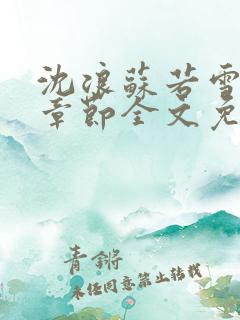 沈浪蘇若雪
章節全文免
青鏘
未经同意禁止转载